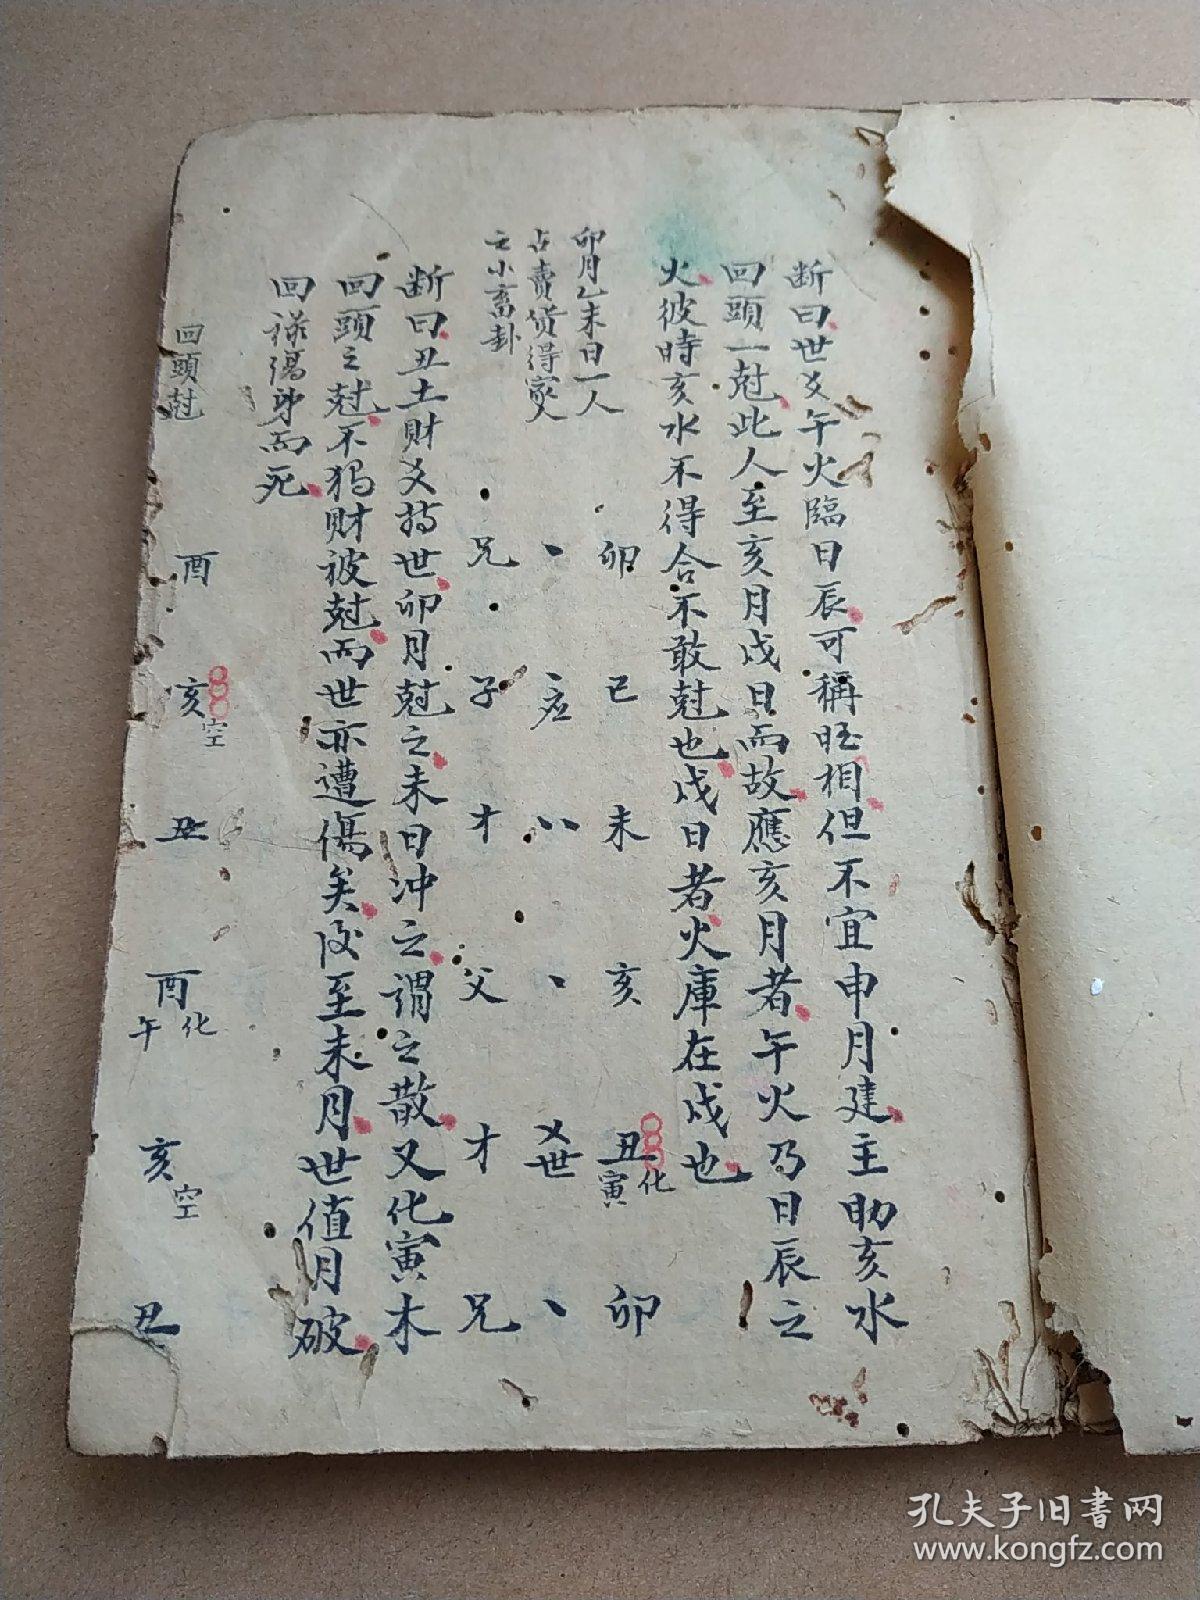 断曰世爻午火臨日辰可稱旺相但不宜申月建主助亥水
回頭一尅此人至亥月戌日而故應亥月者午火乃日辰之
火彼時亥水不得合不敢尅也戌日者火庫在戌也
卯月乙未日一人
占賣貨得家人
之小畜卦
卯 巳 未 亥 丑化寅 卯
丶 丶应 丷 丶 乂世 丶
兄 子 才 父 才 兄
断曰丑土財爻持世卯月尅之未日冲之謂之散又化寅木
回頭之尅不独財被尅而世亦遭傷矣後至未月世值月破
回祿傷身而死
回頭尅
酉 亥空 丑 酉化午 亥空 丑
孔夫子旧书网
www.kongfz.com